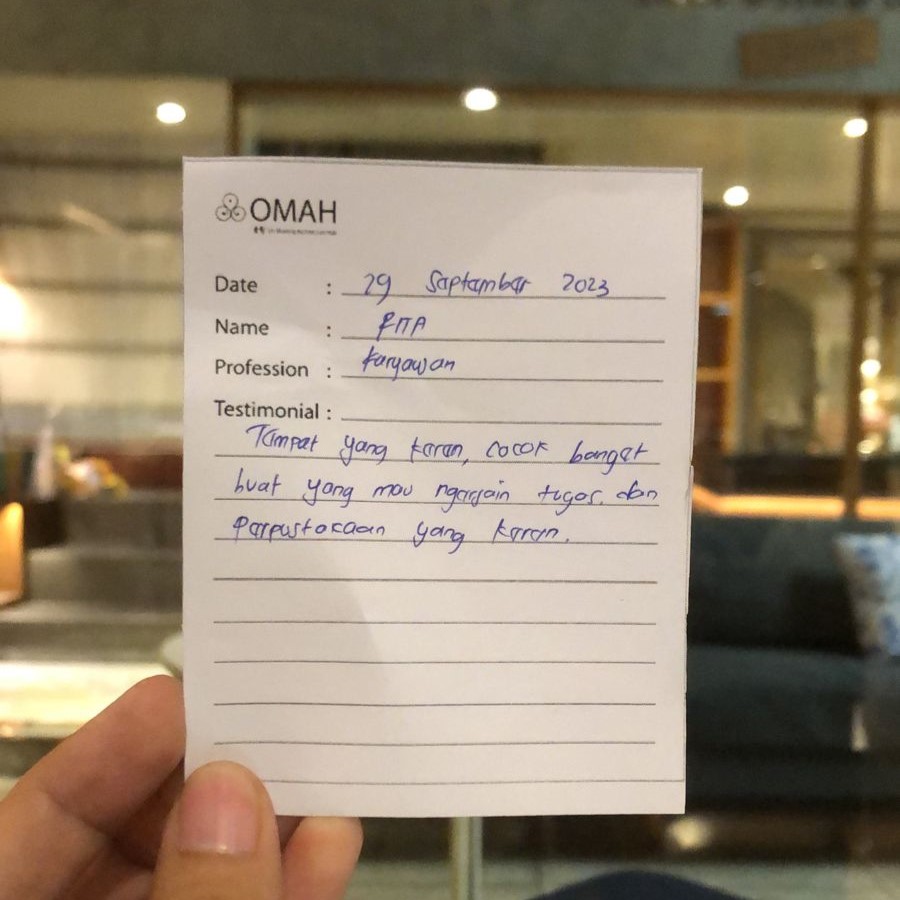 OMAH
Date : 29 September 2023
Name : RITA
Profession : Karyawan
Testimonial :
Tempat yang keren, cocok banget
buat yang mau ngerjain tugas, dan
Perpustakaan yang keren.